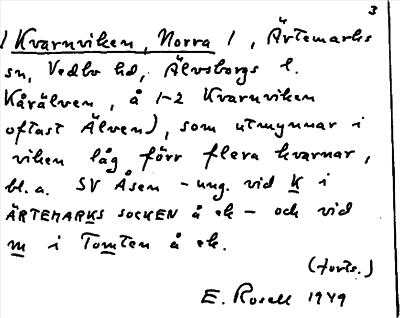 3
/ Kvarnviken, Norra /, Ärtemarks
sn, Vedbo hd, Älvsborgs l.
Kårälven, å 1-2 Kvarnviken
oftast Älven), som utmynnar i
viken låg förr flera kvarnar,
bl.a. SV Åsen - ung. vid K i
ÄRTEMARKS SOCKEN å ek - och vid
m i Tomten å ek.
(forts.)
E. Rosell 1949